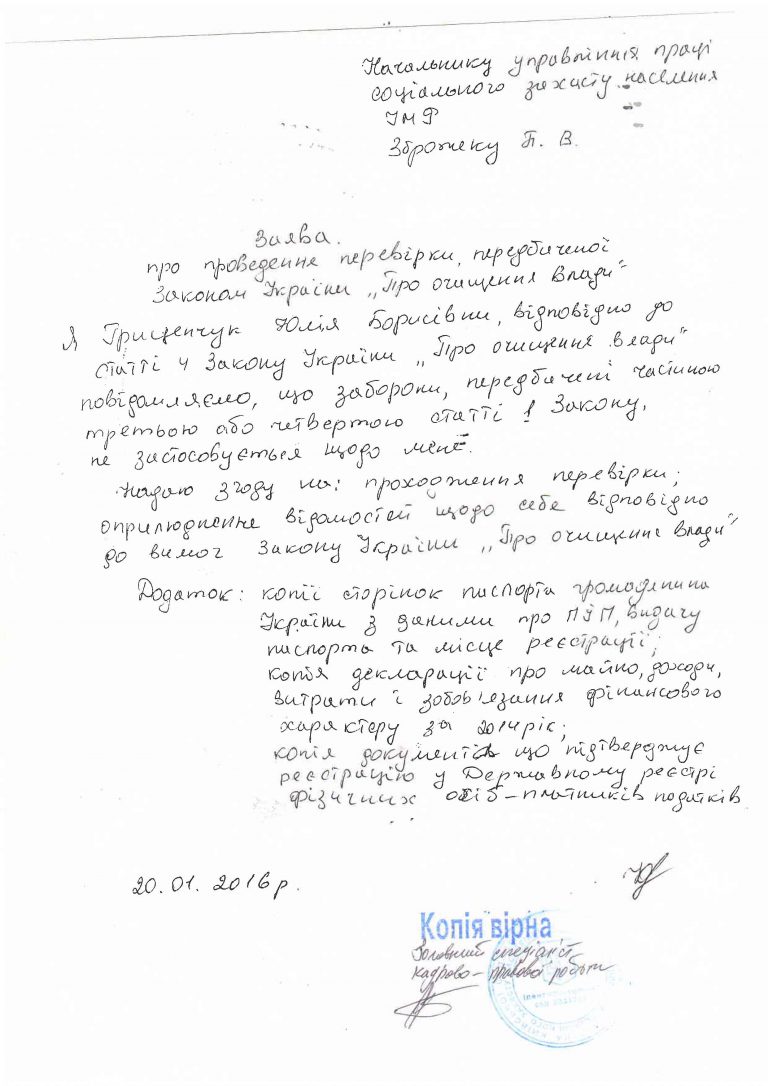 Начальнику управління праці
соціального захисту населення
ІМФ
Зброжеку П. В.
Заява.
про проведення перевірки, передбаченої
Законом України „Про очищення влади"
Я Грищенчук Юлія Борисівни, відповідно до
статті 4 Закону України „Про очищення влади"
повідомляємо, що заборони, передбачені частиною
третьою або четвертою статті 1 Закону,
не застосовується щодо мене.
Надаю згоду на: проходження перевірки;
оприлюднення відомостей щодо себе відповідно
до вимог Закону України „Про очищення влади"
Додаток: копії сторінок паспорта громадянина
України з даними про ПІП, видачу
паспорта та місце реєстрації;
копія декларації про майно, доходи,
витрати і зобов'язання фінансового
характеру за 2014 рік;
копія документів що підтверджує
реєстрацію у Державному реєстрі
фізичних осіб – платників податків
20.01.2016 р.
Копія вірна
Головний спеціаліст
кадрово – правової роботи